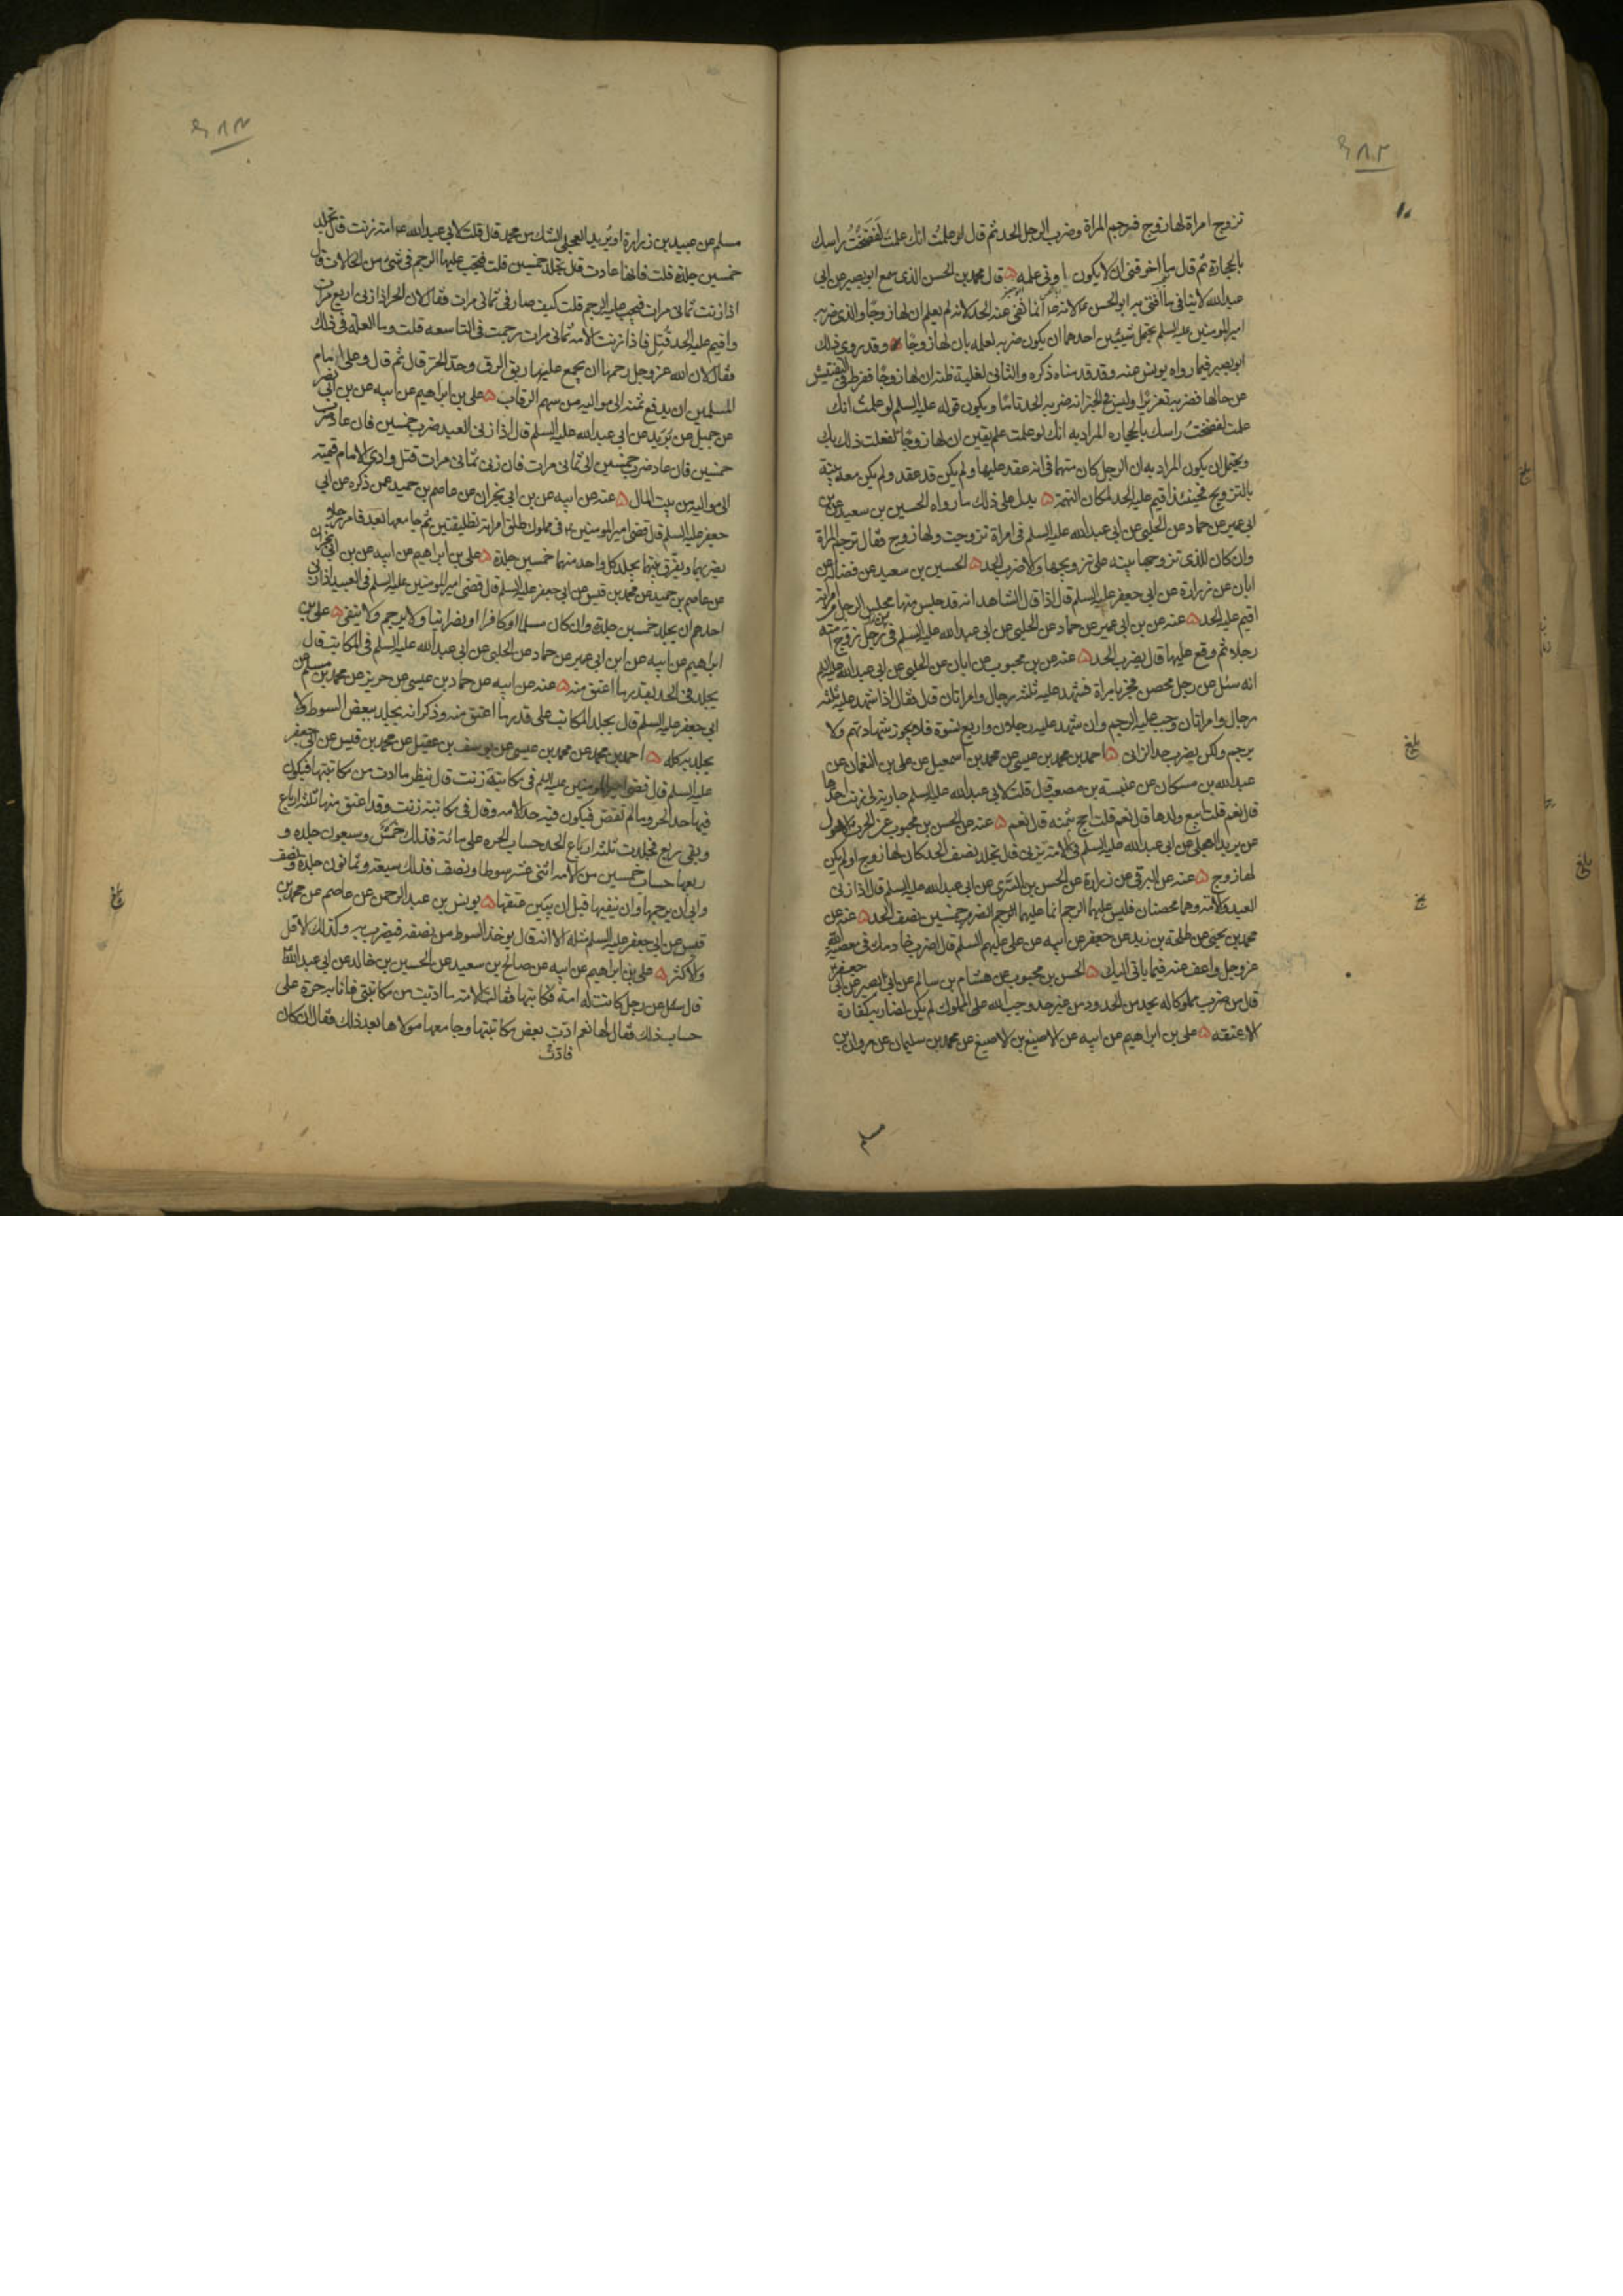 تزوج امراة لها زوج فرجم المراة وضرب الرجل الحد ثم قال لو علمت انك علمت لفضخت راسك
بالحجارة ثم قال ما اخوفني ان لا يكون اوتي علمه قال محمد بن الحسن الذي سمع ابو بصير من ابي
عبد الله لا ينافي ما افتى به ابو الحسن لانه انما نفى عنه الحد لانه لم يعلم ان لها زوجا والذي ضربه
امير المومنين عليه السلم يحتمل شيئين احدهما ان يكون ضربه لعلمه بان لها زوجا وقد روى ذلك
ابو بصير فيما رواه يونس عنه وقد قدمناه ذكره والثاني لغلبة ظنه ان لها زوجا ففرط في التفتيش
عن حالها فضربه تعزيرا وليس في الخبر انه ضربه الحد تاما ويكون قوله عليه السلم لو علمت انك
علمت لفضخت راسك بالحجاره المراد به انك لو علمت علم يقين ان لها زوجا لفعلت ذلك بك
ويحتمل ان يكون المراد به ان الرجل كان متهما في انه عقد عليها ولم يكن قد عقد ولم يكن معه بينة
بالتزويج فحينئذ اقيم عليه الحد لمكان التهمة يدل على ذلك ما رواه الحسين بن سعيد عن بن
ابي عمير عن حماد عن الحلبي عن ابي عبد الله عليه السلم في امراة تزوجت ولها زوج فقال ترجم المراة
وان كان للذي تزوجها بينه على تزويجها والا ضرب الحد الحسين بن سعيد عن فضاله عن
ابان عن زرارة عن ابي جعفر عليه السلم قال اذا قال الشاهد انه قد جلس منها مجلس الرجل من امراته
اقيم عليه الحد عنه عن بن ابي عمير عن حماد عن الحلبي عن ابي عبد الله عليه السلم في رجل زوج امته
رجلا ثم وقع عليها قال يضرب الحد عنه عن بن محبوب عن ابان عن الحلبي عن ابي عبد الله عليه السلم
انه سئل عن رجل محصن فجر بامراة فشهد عليه ثلثه رجال وامراتان قال فقال اذا شهد عليه ثلثه
رجال وامراتان وجب عليه الرجم وان شهد عليه رجلان واربع نسوة فلا يجوز شهادتهم ولا
يرجم ولكن يضرب حد الزاني احمد بن محمد بن عيسى عن محمد بن اسمعيل عن علي بن النعمان عن
عبد الله بن مسكان عن عنبسة بن مصعب قال قلت لابي عبد الله عليه السلم جارية لي زنت احدها
قال نعم قلت ابيع ولدها قال نعم قلت احج بثمنه قال نعم عنه عن الحسن بن محبوب عن الحرث بن الاحول
عن بريد العجلي عن ابي عبد الله عليه السلم في الامة تزني قال تجلد نصف الحد كان لها زوج او لم يكن
لها زوج عنه عن البرقي عن زرارة عن الحسن بن السري عن ابي عبد الله عليه السلم قال اذا زنى
العبد والامة وهما محصنان فليس عليهما الرجم انما عليهما الضرب خمسين نصف الحد عنه عن
محمد بن يحيى عن طلحة بن زيد عن جعفر عن ابيه عن علي عليهم السلم قال اضرب خادمك في معصية الله
عز وجل واعف عنه فيما ياتي اليك الحسن بن محبوب عن هشام بن سالم عن ابي بصير عن ابي جعفر
قال من ضرب مملوكا له بحد من الحدود من غير حد وجب لله على المملوك لم يكن لضاربه كفارة
الا عتقه علي بن ابراهيم عن ابيه عن الاصبغ بن الاصبغ عن محمد بن سليمان عن مروان بن
مسلم
مسلم عن عبيد بن زرارة او بريد العجلي الشك من محمد قال قلت لابي عبد الله امة زنت قال تجلد
خمسين جلدة قلت فانها عادت قال تجلد خمسين قلت فيجب عليها الرجم في شي من الحالات قال
اذا زنت ثماني مرات فيجب عليه الرجم قلت كيف صار في ثماني مرات فقال لان الحر اذا زنى اربع مرات
واقيم عليه الحد قتل فاذا زنت الامه ثماني مرات رجمت في التاسعه قلت وما العلة في ذلك
فقال لان الله عز وجل رحمها ان يجمع عليها ربق الرق وحد الحر قال ثم قال وعلى امام
المسلمين ان يدفع ثمنه الى مواليه من سهم الرقاب علي بن ابراهيم عن ابيه عن بن ابي نصر
عن جميل عن بريد عن ابي عبد الله عليه السلم قال اذا زنى العبد ضرب خمسين فان عاد ضرب
خمسين فان عاد ضرب خمسين الى ثماني مرات فان زنى ثماني مرات قتل وادى الامام قيمته
الى مواليه من بيت المال عنه عن ابيه عن بن ابي نجران عن عاصم بن حميد عمن ذكره عن ابي
جعفر عليه السلم قال قضى امير المومنين في مملوك طلق امراته تطليقتين ثم جامعها بعد فامر رجلا
يضربهما ويفرق بينهما يجلد كل واحد منهما خمسين جلدة علي بن ابراهيم عن ابيه عن بن ابي نجران
عن عاصم بن حميد عن محمد بن قيس عن ابي جعفر عليه السلم قال قضى امير المومنين عليه السلم في العبيد اذا زنى
احدهم ان يجلد خمسين جلدة وان كان مسلما او كافرا او نصرانيا ولا يرجم ولا ينفى علي بن
ابراهيم عن ابيه عن ابن ابي عمير عن حماد عن الحلبي عن ابي عبد الله عليه السلم في المكاتب قال
يجلد في الحد بقدر ما اعتق منه عنه عن ابيه عن حماد بن عيسى عن حريز عن محمد بن مسلم عن
ابي جعفر عليه السلم قال يجلد المكاتب على قدر ما اعتق منه وذكر انه يجلد ببعض السوط ولا
يجلد به كله احمد بن محمد عن محمد بن عيسى عن يوسف بن عقيل عن محمد بن قيس عن ابي جعفر
عليه السلم قال قضى امير المومنين عليه السلم في مكاتبة زنت قال ينظر ما ادت من مكاتبتها فيكون
فيها حد الحر وما لم تقض فيكون فيه حد الامه وقال في مكاتبة زنت وقد اعتق منها ثلثه ارباع
وبقي ربع فجلدت ثلثه ارباع الحد حساب الحره على مائة فذلك خمس وسبعون جلده و
ربعها حساب خمسين من الامه اثني عشر سوطا ونصف فذلك سبعة وثمانون جلدة ونصف
وابى ان يرجمها وان ينفيها قبل ان يبين عتقها يونس بن عبد الرحمن عن عاصم عن محمد بن
قيس عن ابي جعفر عليه السلم مثله الا انه قال يوخذ السوط من نصفه فيضرب به وكذلك الاقل
والاكثر علي بن ابراهيم عن ابيه عن صالح بن سعيد عن الحسين بن خالد عن ابي عبد الله
قال سئل عن رجل كانت له امة فكاتبها فقالت الامة ما اديت من مكاتبتي فانا به حرة على
حساب ذلك فقال لها نعم فادت بعض مكاتبتها وجامعها مولاها بعد ذلك فقال ان كان
فادت
بلغ
بلغ